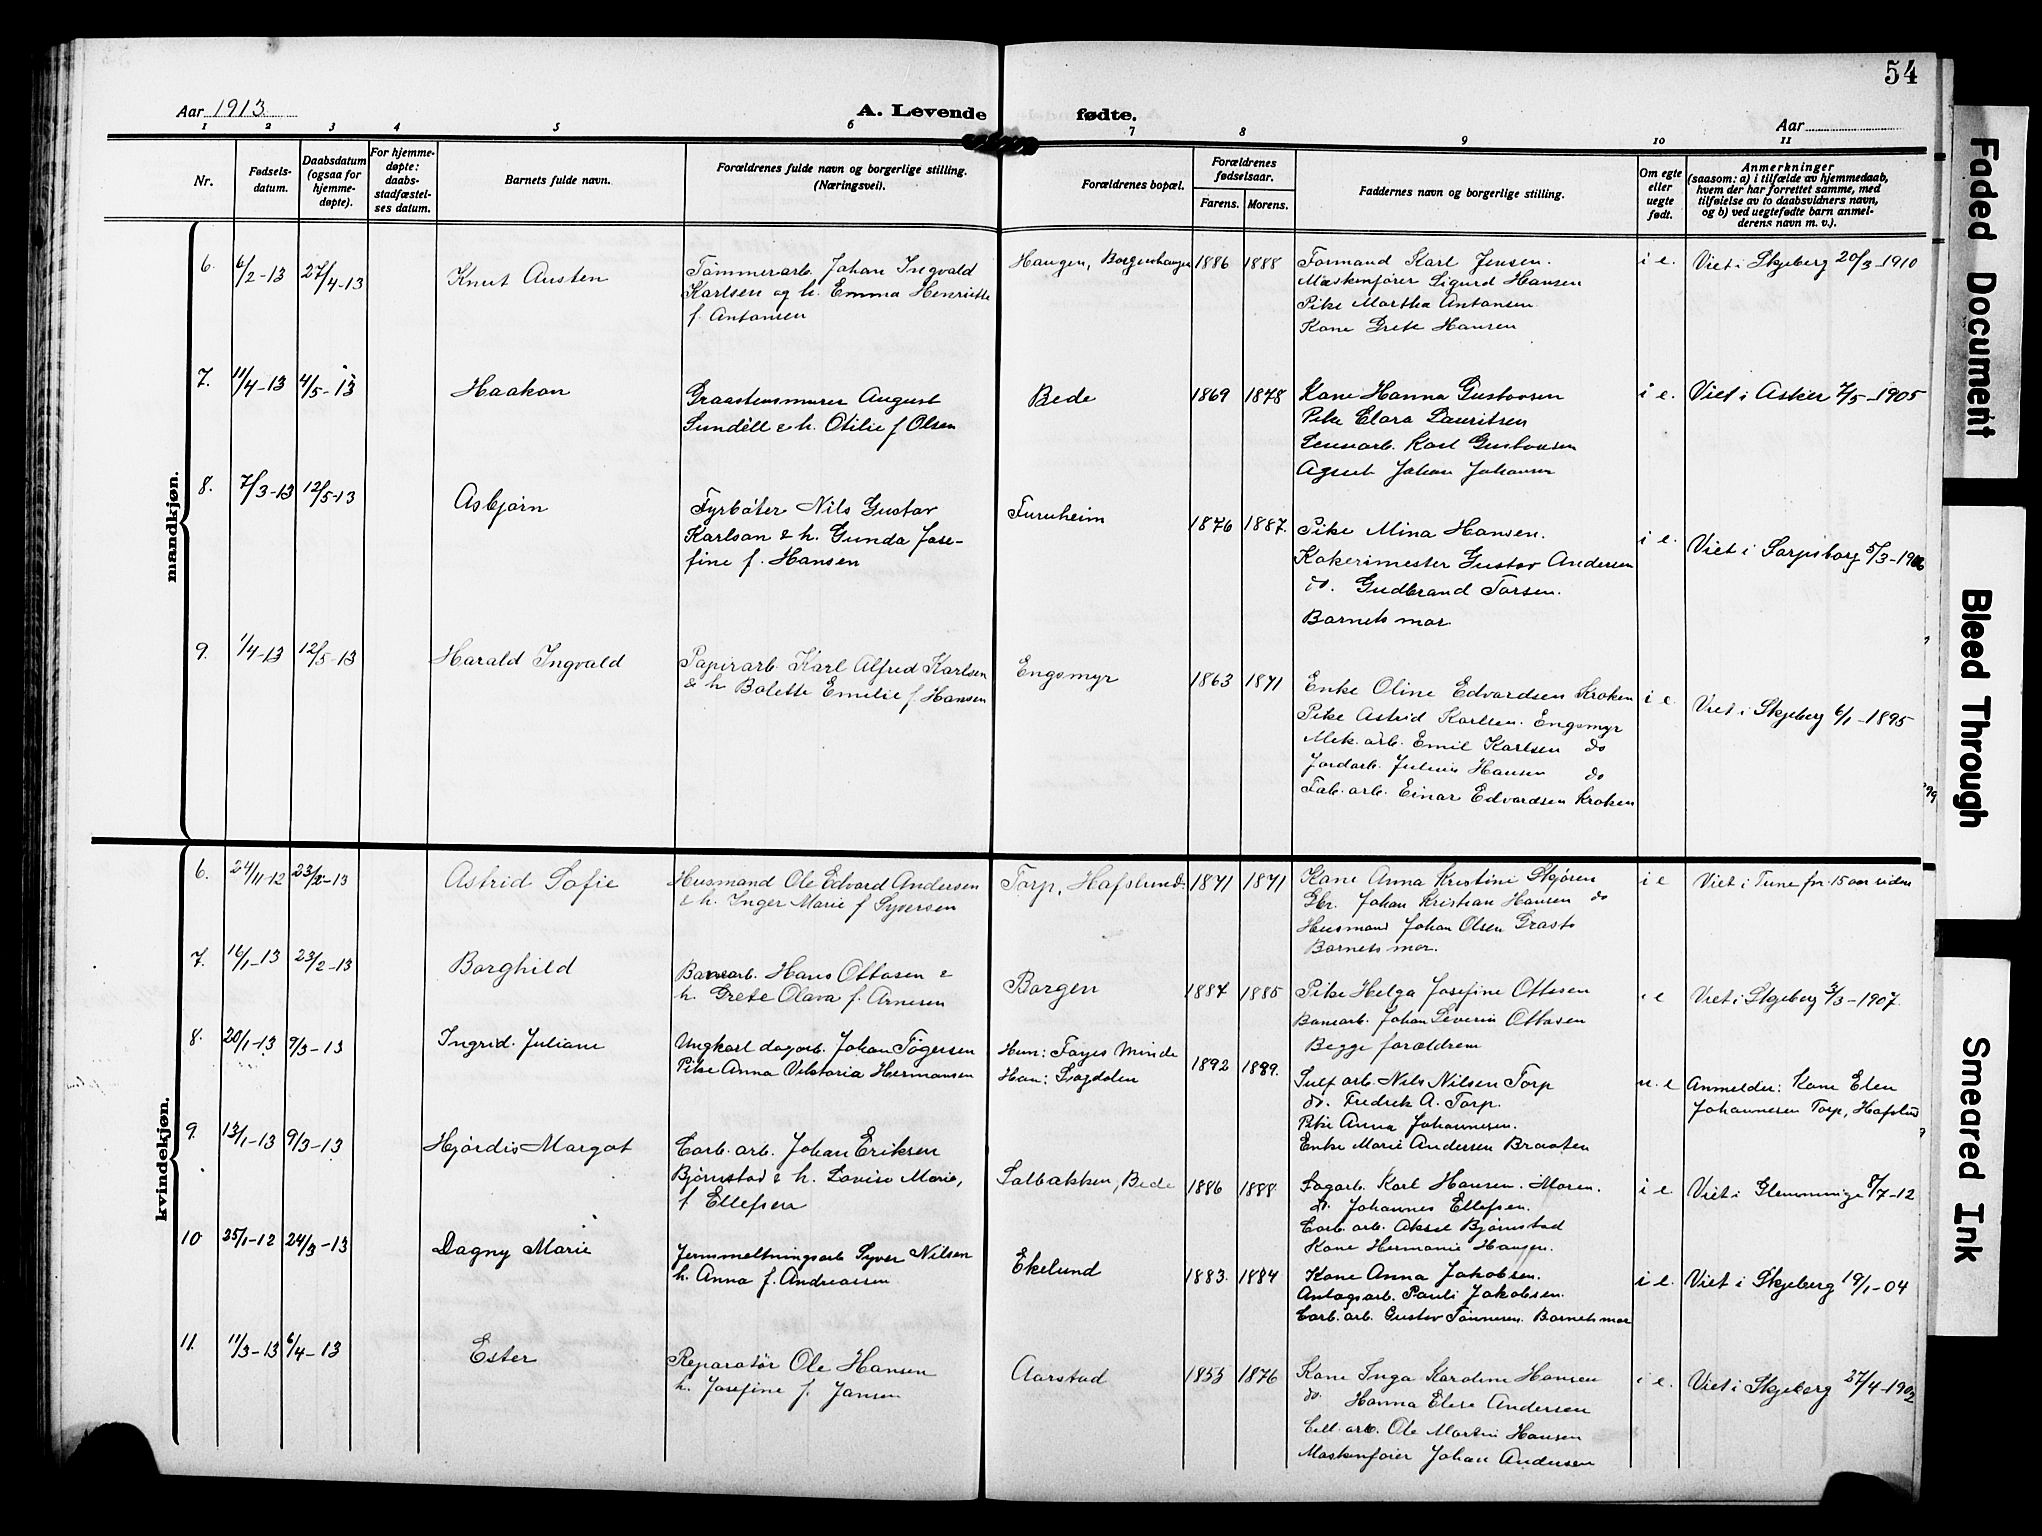 54
Aar 1913
A. Levende fødte.
Aar
1 2 3 4 5 6 7 8 9 10 11
Nr.
Fødsels-
datum.
Daabsdatum
(ogsaa for
hjemme-
døpte).
For hjemme-
døpte:
daabs-
stadfæstel-
ses datum.
Barnets fulde navn.
Forældrenes fulde navn og borgerlige stilling.
(Næringsvei).
Forældrenes bopæl.
Forældrenes
fødselsaar.
Farens. Morens.
Faddernes navn og borgerlige stilling.
Om egte
eller
uegte
født.
Anmerkninger
(saasom: a) i tilfælde av hjemmedaab,
hvem der har forrettet samme, med
tilføielse av to daabsvidners navn,
og b) ved uegtefødte barn anmel-
derens navn m. v.).
mandkjøn.
6. 6/2-13 27/4-13 Knut Austen
Tømmerarb. Johan Ingvald
Karlsen og h. Emma Henriette
f. Antonsen
Haugen, Borgenhaugen 1886 1888
Formand Karl Jensen.
Maskinfører Sigurd Hansen
Pike Martha Antonsen
Kone Grete Hansen
i e. Viet i Skjeberg 20/3-1910
7. 11/4-13 4/5-13 Haakon
Graastensmurer August
Sundèll & h. Otilie f Olsen
Bede 1869 1878
Kone Hanna Gustavsen
Pike Clara Lauritsen
Karl Gustavsen
Agent Johan Johansen
i e. Viet i Asker 7/5-1905
8. 7/3-13 12/5-13 Asbjørn
Fyrbøter Nils Gustav
Karlson & h. Gunda Jose-
fine f. Hansen
Furuheim 1876 1887.
Pike Mina Hansen.
Kokerimester Gustav Andersen
do. Gudbrand Torsen.
Barnets mor
i e. Viet i Sarpsborg 5/3-1906
9. 1/4-13 12/5-13 Harald Ingvald
Papirarb. Karl Alfred Karlsen
& h Bolette Emilie f. Hansen
Engsmyr 1863 1871
Enke Oline Edvardsen Kroken
Pike Astrid Karlsen. Engsmyr
Mek. arb. Emil Karlsen do
Jordarb. Julius Hansen do
Fab. arb. Einar Edvardsen Kroken
i e. Viet i Skjeberg 6/1-1895
kvindekjøn.
6. 24/11-12 23/2-13 Astrid Sofie
Husmand Ole Edvard Andersen
& h. Inger Marie f Syversen
Torp, Hafslund. 1871 1871
Kone Anna Kristine Skjøren
Gbr. Johan Kristian Hansen do
Husmand Johan Olsen Grasto
Barnets mor.
i e Viet i Tune for 15 aar siden
7. 16/1-13 23/2-13 Borghild
Banearb. Hans Ottosen &
h. Grete Olava f. Arnesen
Borgen 1887 1885
Pike Helga Josefine Ottesen
Banearb. Johan Severin Ottosen
Begge forældrene
i e Viet i Skjeberg 3/3-1907.
8. 20/1-13 9/3-13 Ingrid Juliane
Ungkarl dagarb. Johan Tögersen
Pike Anna Viktoria Hermansen
Hun: Fayes Minde
Han: Sogdalen 1892 1889.
Sulf arb. Nils Nilsen Torp
do. Fredrik A. Torp.
Pike Anna Johannesen.
Enke Marie Andersen Braaten
u. e Anmelder: Kone Elen
Johannesen Torp, Hafslund
9. 13/1-13 9/3-13 Hjørdis Margot
Carb. arb. Johan Eriksen
Bjørnstad & h. Lovise Marie,
f Ellefsen
Solbakken, Bede 1886 1888
Sagarb. Karl Hansen. Moren.
do. Johannes Ellefsen.
Carb. arb. Aksel Bjørnstad
Kone Hermanie Hansen.
i e. Viet i Glemminge 8/7-12
10 25/1-12 24/3-13 Dagny Marie
Jernsmeltningsarb Syver Nilsen
h. Anna f. Andreassen
Ekelund 1883. 1884
Kone Anna Jakobsen.
Anlægsarb. Pauli Jakobsen.
Carb. arb. Gustav Tønnesen. Barnets mor
i e. Viet i Skjeberg 19/1-04
11. 11/3-13 6/4-13 Ester
Reparatør Ole Hansen
h. Josefine f. Jansen
Aarstad 1855 1876
Kone Inga Karoline Hansen
do. Hanna Elise Andersen
Cell. arb. Ole Martin Hansen
Maskinfører Johan Andersen
i e. Viet i Skjeberg 27/4-1902
Faded Document
Bleed Through
Smeared Ink